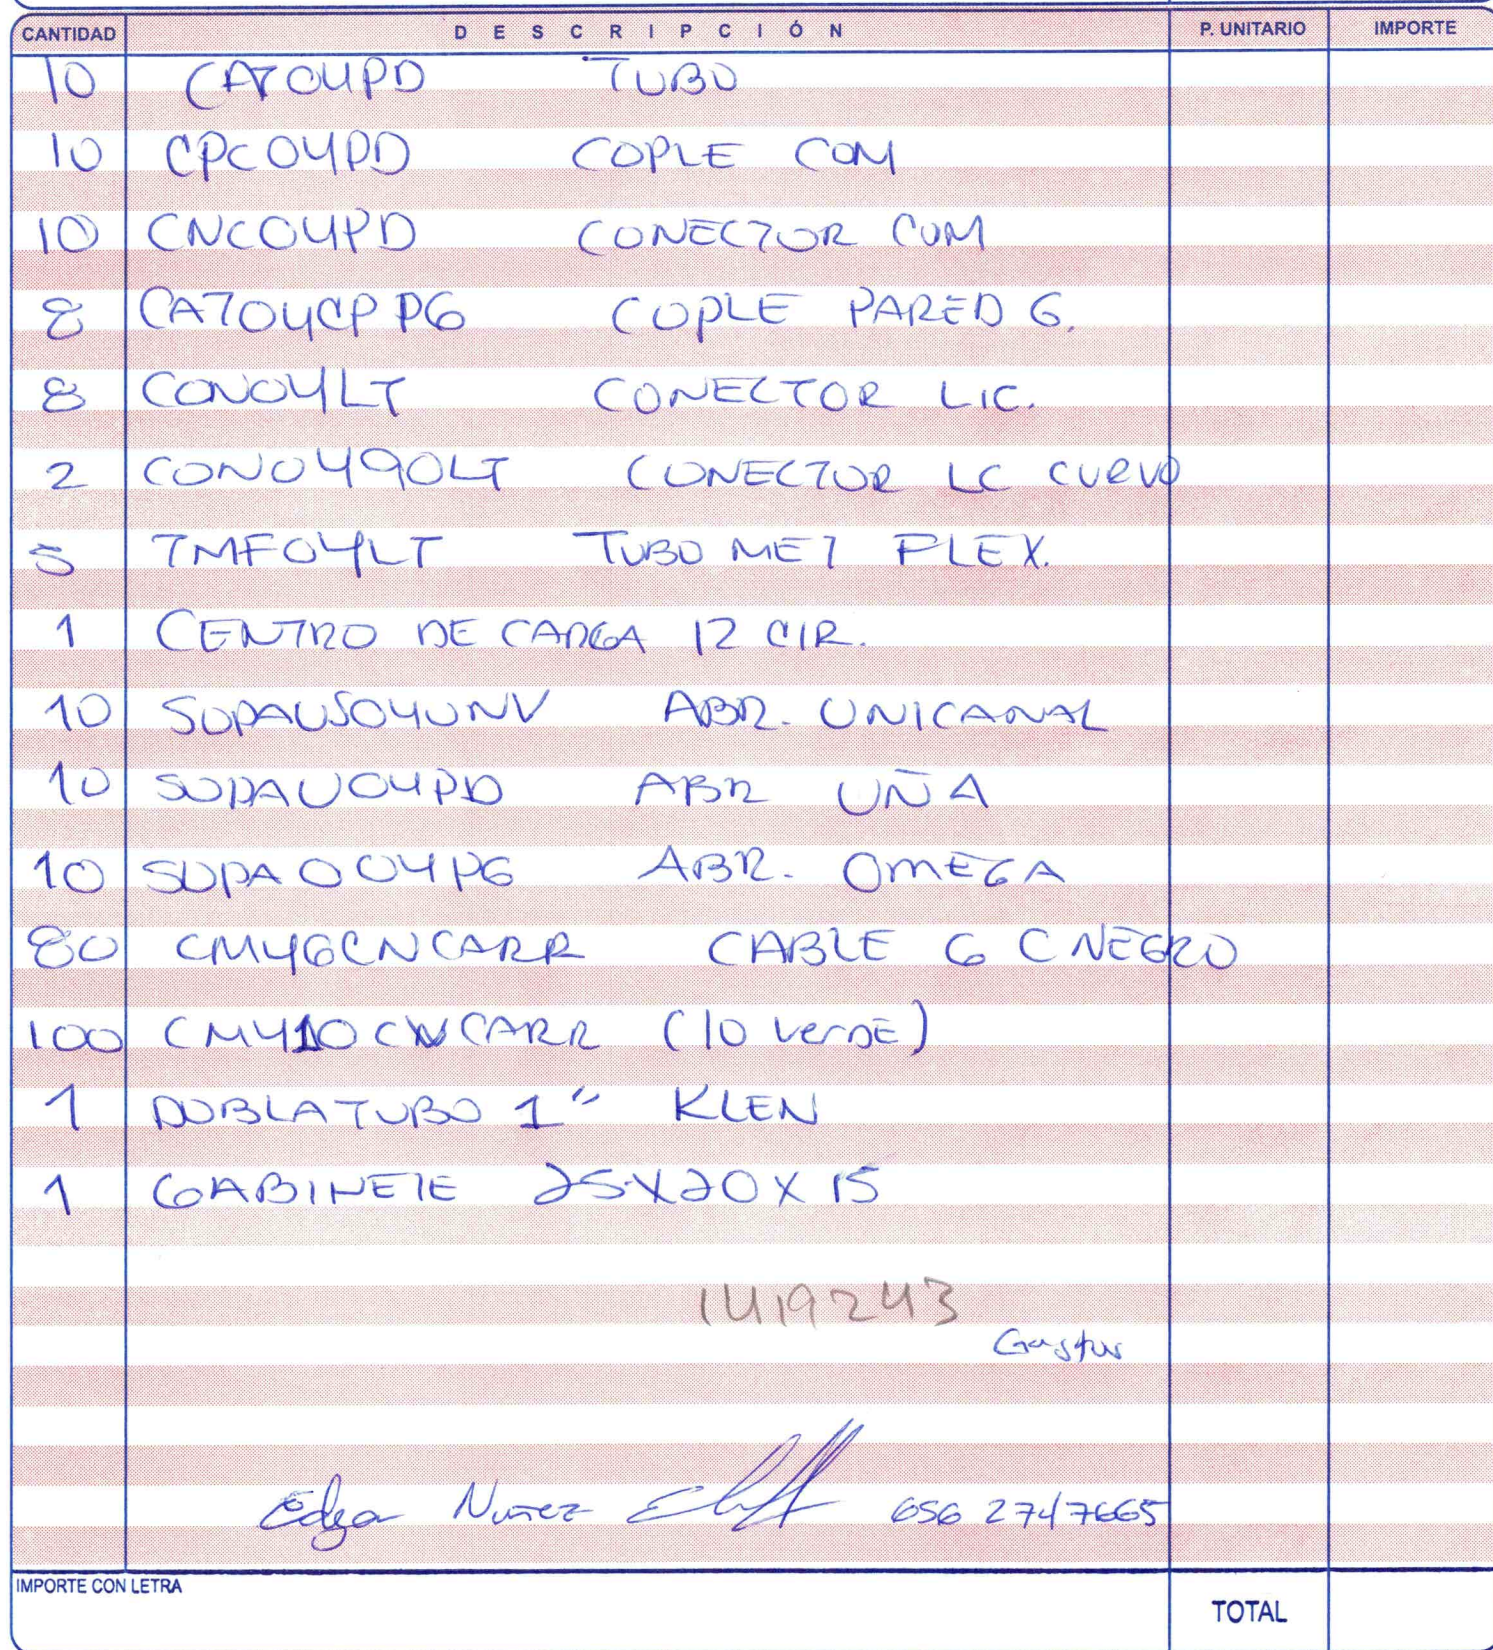 CANTIDAD DESCRIPCIÓN P. UNITARIO IMPORTE
10 CAT04PD TUBO
10 CPC04PD COPLE COM
10 CNC04PD CONECTOR COM
8 CAT04CPPG COPLE PARED G.
8 CON04LT CONECTOR LIC.
2 CON0490LT CONECTOR LC CURVO
5 TMF04LT TUBO MET FLEX.
1 CENTRO DE CARGA 12 CIR.
10 SOPAUS04UNV ABR. UNICANAL
10 SOPAU04PD ABR UÑA
10 SOPAO04PG ABR. OMEGA
80 CM46CNCARR CABLE 6 C NEGRO
100 CM410CNCARR (10 VERDE)
1 DOBLATUBO 1" KLEN
1 GABINETE 25X20X15
1419243
Edgar Nuñez 656 2747665
IMPORTE CON LETRA
TOTAL